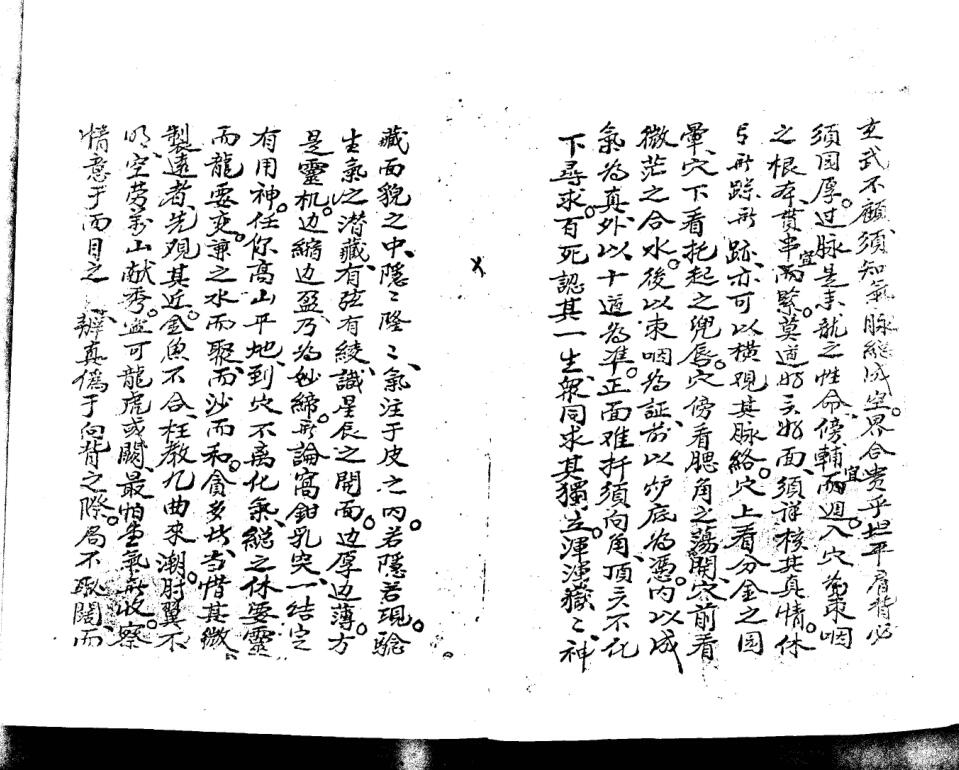 玄武不顧、須知氣脉總成空。界合贵乎坦平肩背必
須固厚。过脉是来龙之性命、傍輔宜而迴。入穴为束咽
之根本、贯串宜而緊。莫道好头好面、须詳核其真情。休
跡、亦可以横观其脉絡。穴上看分金之圆
暈、穴下看托起之兜唇。穴傍看腮角之蕩開、穴前看
微茫之合水。後以束咽為証、前以炉底為憑。内以成
氣為真、外以十道為准。正面难扦须向角、頂头不化
下尋求。百死認其一生、衆同求其獨立。渾渾嶽〻、神
藏面貌之中、隱〻隆〻、氣注于皮之内。若隱若現。驗
生氣之潜藏、有弦有綾、識星辰之開面。边厚边薄。方
是靈机。边縮边盈、乃為妙締。無論窩鉗乳突、一结定
有用神。任你高山平地、到穴不离化氣。總之休要靈
而龍要变。兼之水而聚、而沙而和。貪多者、当惜其微
製遠者、先观其近。金魚不合、枉教九曲來潮。肘翼不
明、空劳萬山献秀。寧可龍虎或闕、最怕堂氣無收。察
情意于面目之、辨真偽于向背之際。局不取闊、而